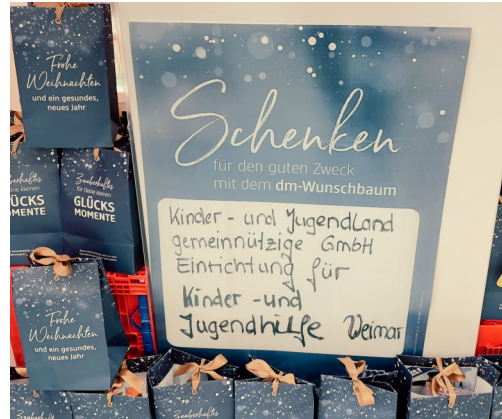 Frohe
Weihnachten
und ein gesundes,
neues Jahr
Zauberhaftes
für Deine kleinen
GLÜCKS
MOMENTE
Frohe
Weihnachten
und ein gesundes,
neues Jahr
Schenken
für den guten Zweck
mit dem dm-Wunschbaum
Kinder- und Jugendland
gemeinnützige GmbH
Einrichtung für
Kinder -und
Jugendhilfe Weimar
Zauberhaftes